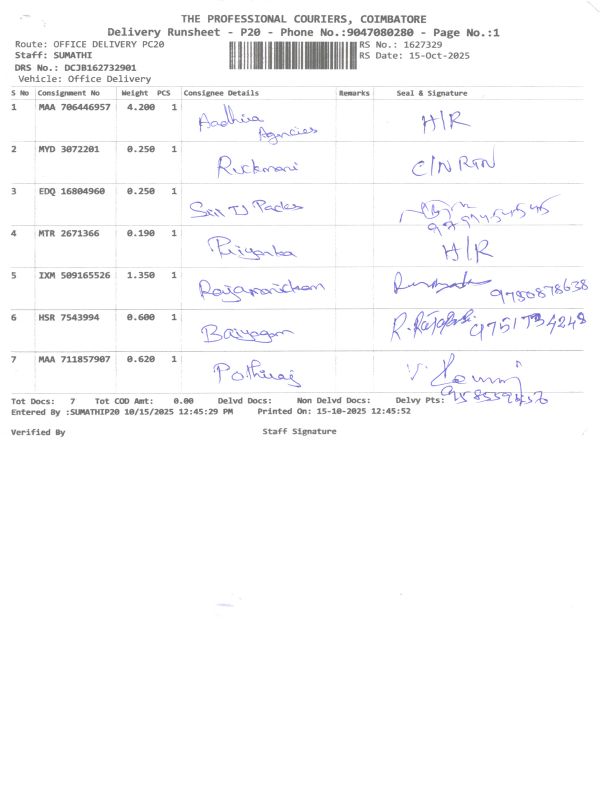 THE PROFESSIONAL COURIERS, COIMBATORE
Delivery Runsheet - P20 - Phone No.:9047080280 - Page No.:1
Route: OFFICE DELIVERY PC20 RS No.: 1627329
Staff: SUMATHI RS Date: 15-Oct-2025
DRS No.: DCJB162732901
Vehicle: Office Delivery
S No Consignment No Weight PCS Consignee Details Remarks Seal & Signature
1 MAA 706446957 4.200 1 Aadhira H/R
Agencies
2 MYD 3072201 0.250 1 Ruckmani C/N RTN
3 EDQ 16804960 0.250 1 Sri TJ Packs
4 MTR 2671366 0.190 1 Priyanka H/R
5 IXM 509165526 1.350 1 Rajamanickam 9780878638
6 HSR 7543994 0.600 1 Baiyagam
7 MAA 711857907 0.620 1 Pothiraj
Tot Docs: 7 Tot COD Amt: 0.00 Delvd Docs: Non Delvd Docs: Delvy Pts:
Entered By :SUMATHIP20 10/15/2025 12:45:29 PM Printed On: 15-10-2025 12:45:52
Verified By Staff Signature